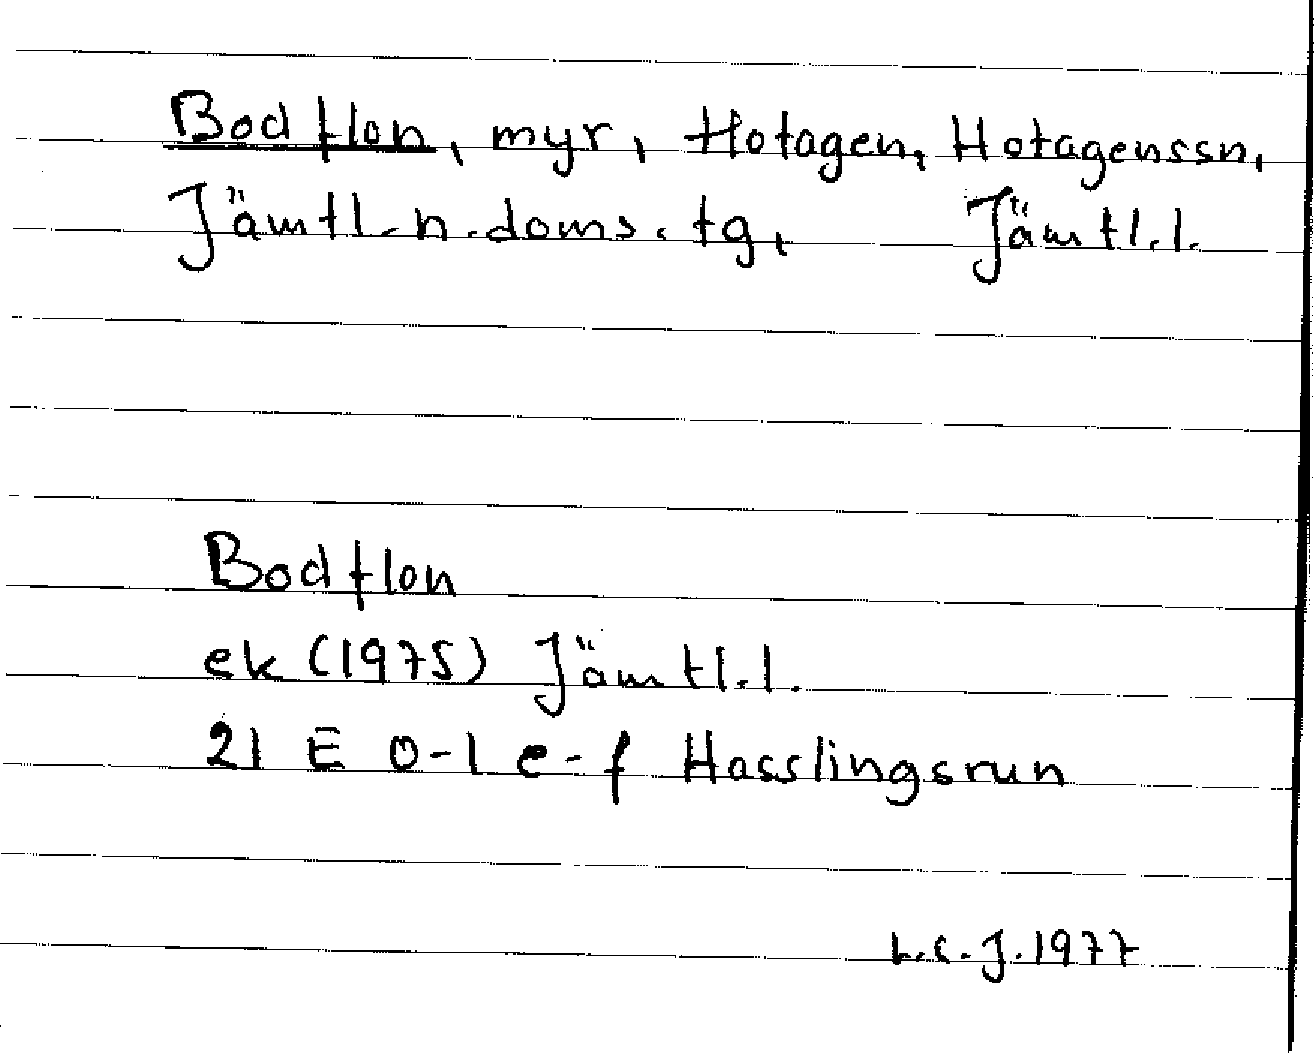 Bodflon, myr, Hotagen, Hotagenssn,
Jämtl. n. doms. tg, Jämtl.l.
Bodflon
ek (1975) Jämtl.l.
21 E 0-1 e-f Hasslingsrun
L.C.J. 1977